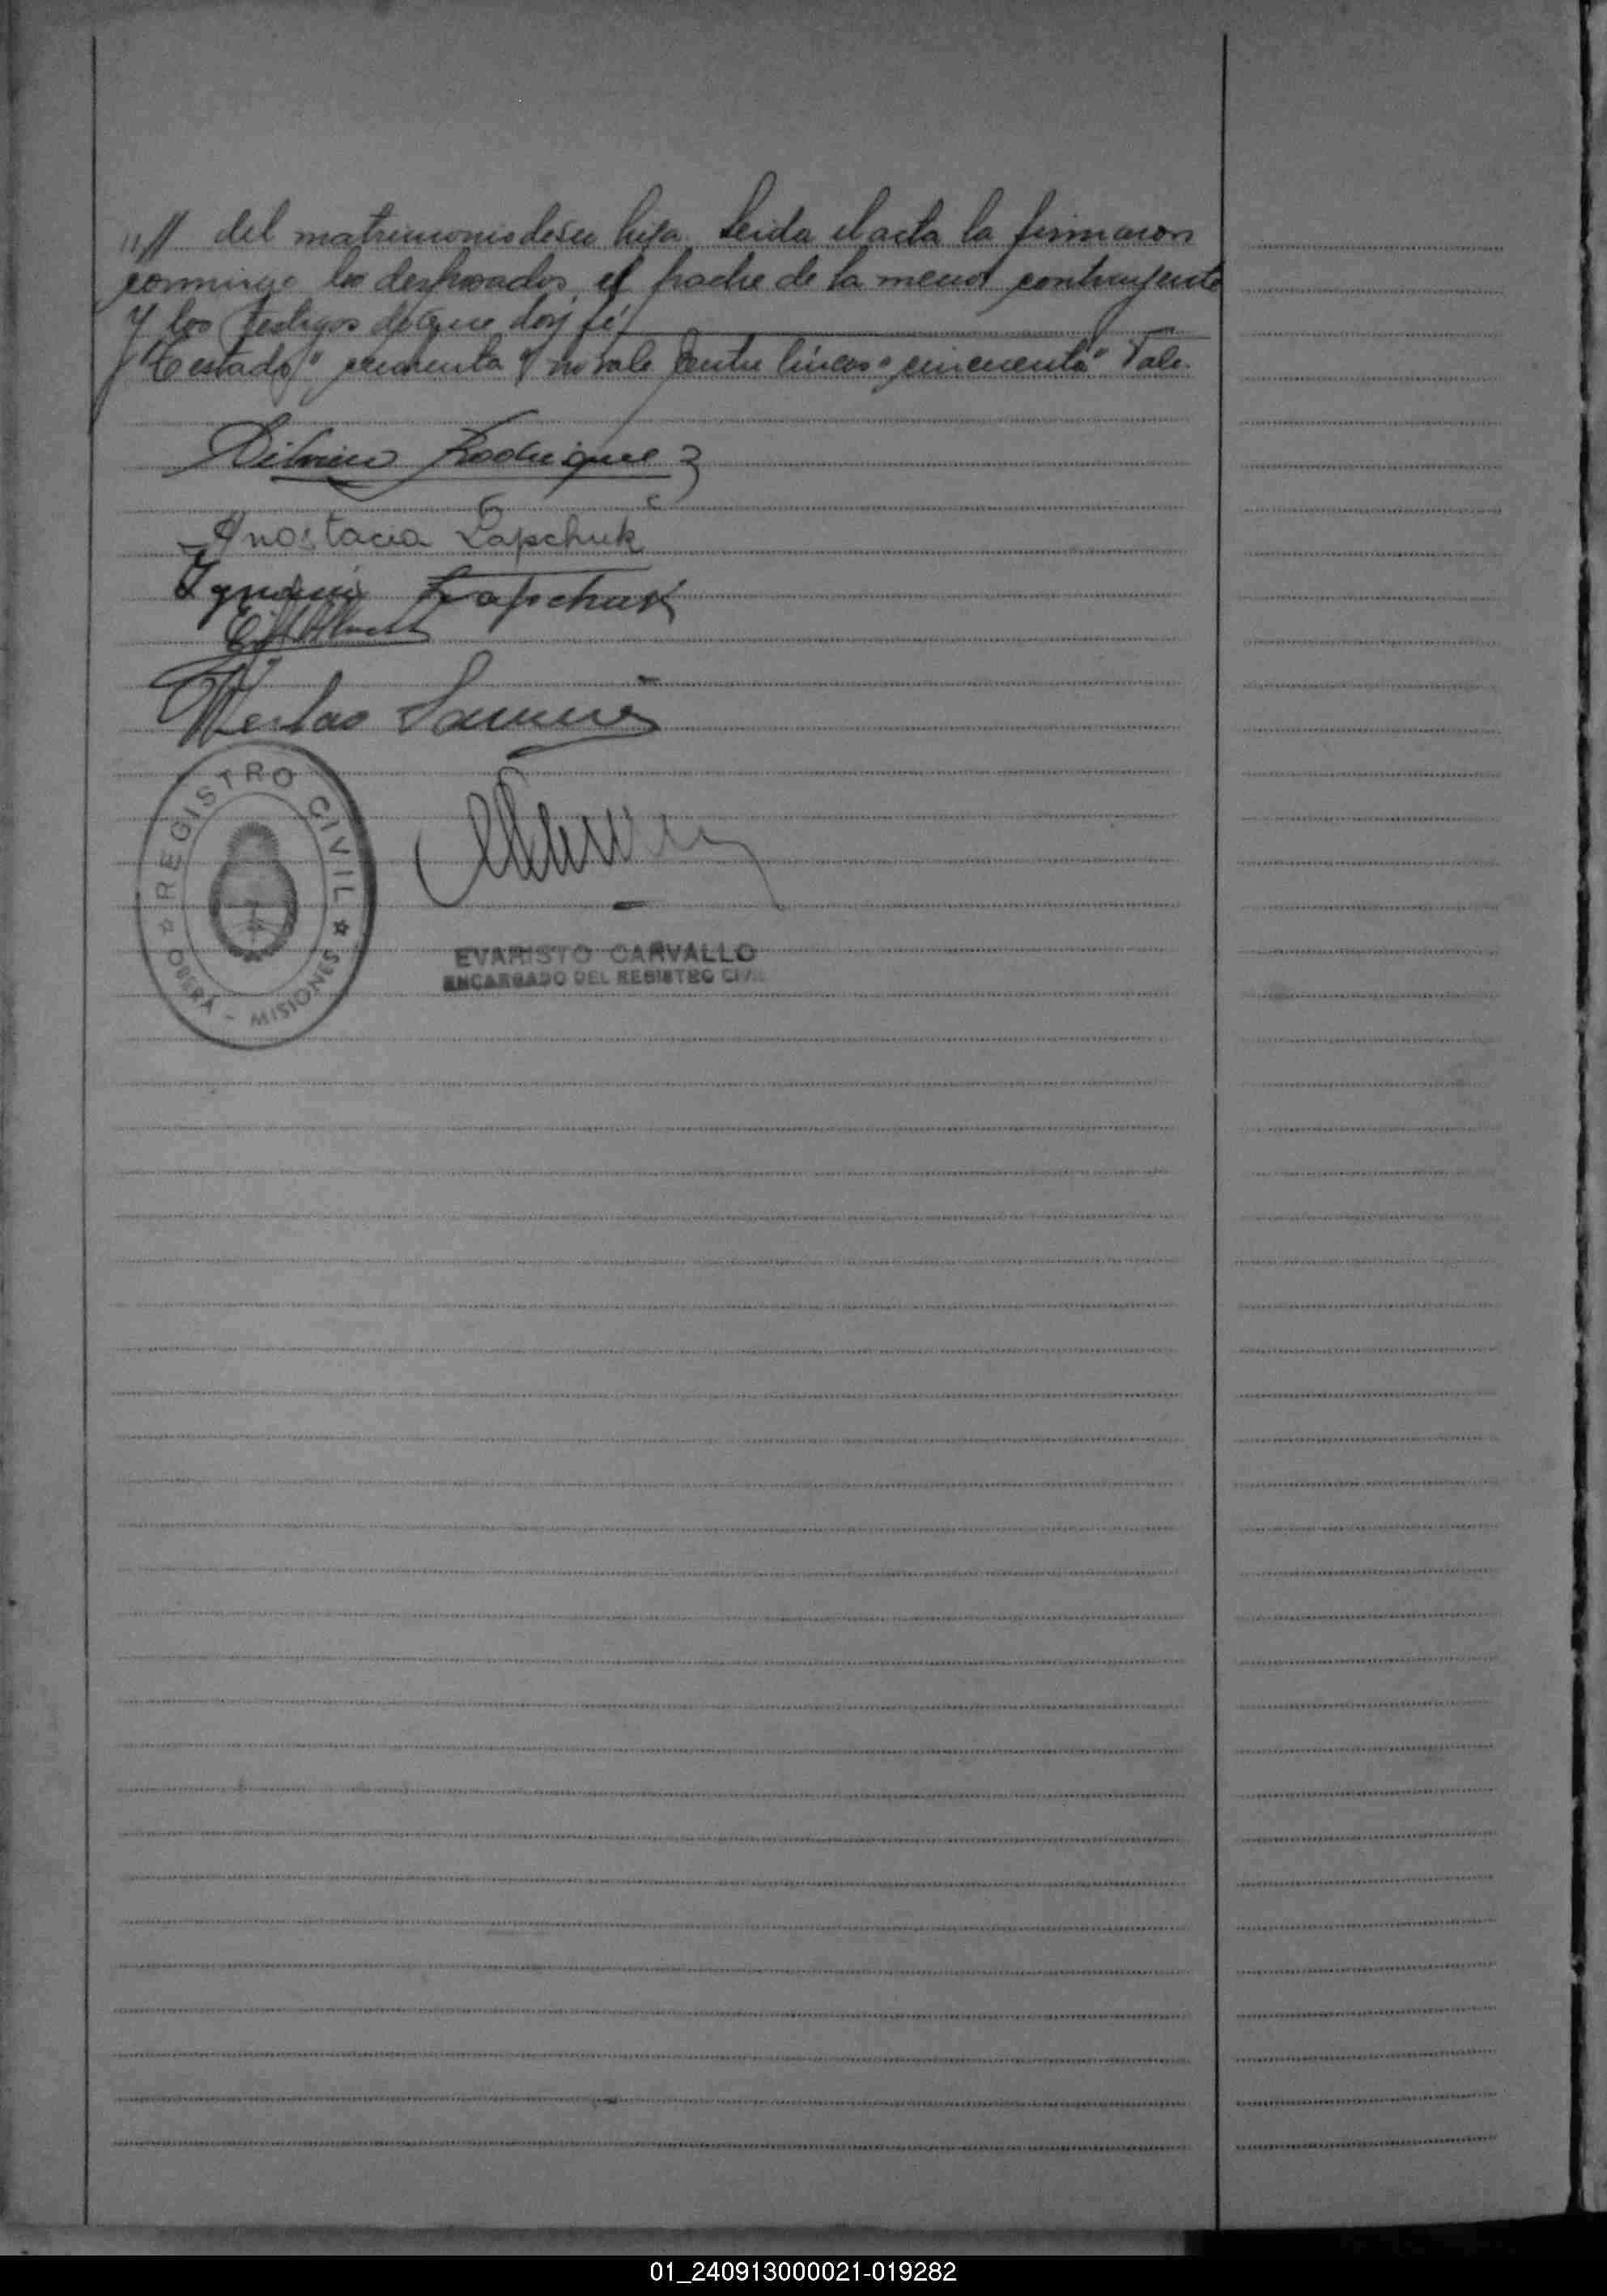 "// del matrimonio de su hija. Leida el acta la firmaron
conmigo los desposados, el padre de la menor contrayente
y los testigos de que doy fé.
Testado" y no vale entre lineas "cincuenta" Vale.
Rodriguez
Anostacia Lapchuk
Ignacio Lapchuk
REGISTRO CIVIL
OBERÁ - MISIONES
EVARISTO CARVALLO
ENCARGADO DEL REGISTRO CIVIL
01_240913000021-019282